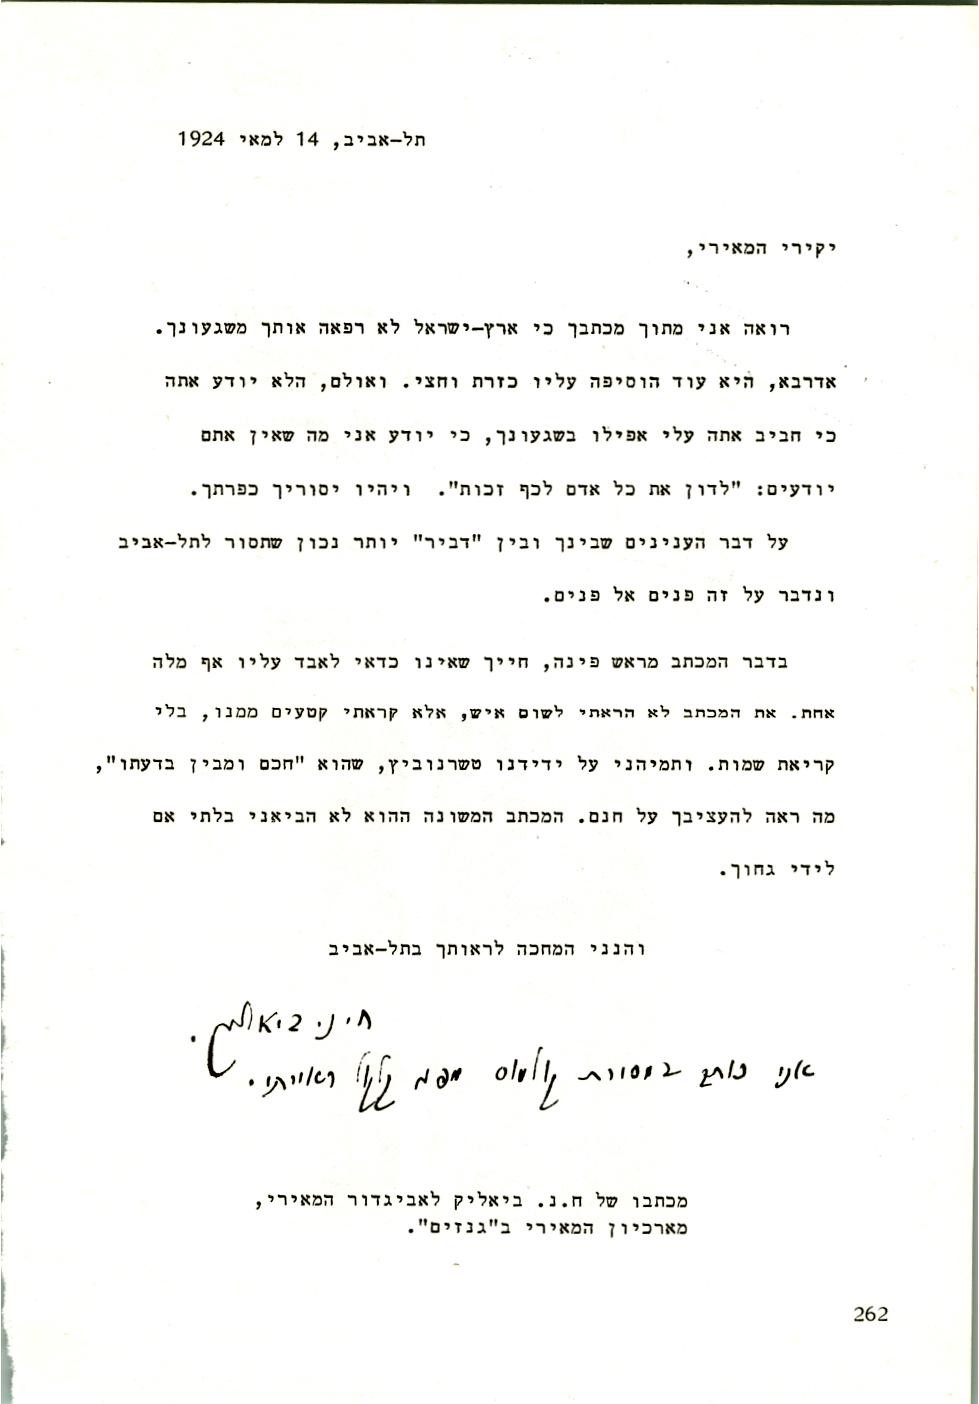 תל-אביב, 14 למאי 1924
יקירי המאירי,
רואה אני מתוך מכתבך כי ארץ-ישראל לא רפאה אותך משגעונך.
אדרבא, היא עוד הוסיפה עליו כזרת וחצי. ואולם, הלא יודע אתה
כי חביב אתה עלי אפילו בשגעונך, כי יודע אני מה שאין אתם
יודעים: "לדון את כל אדם לכף זכות". ויהיו יסוריך כפרתך.
על דבר הענינים שבינך ובין "דביר" יותר נכון שתסור לתל-אביב
ונדבר על זה פנים אל פנים.
בדבר המכתב מראש פינה, חייך שאינו כדאי לאבד עליו אף מלה
אחת. את המכתב לא הראתי לשום איש, אלא קראתי קטעים ממנו, בלי
קריאת שמות. ותמיהני על ידידנו טשרנוביץ, שהוא "חכם ומבין בדעתו",
מה ראה להעציבך על חנם. המכתב המשונה ההוא לא הביאני בלתי אם
לידי גחוך.
והנני המחכה לראותך בתל-אביב
ח. נ. ביאליק.
אני כותב במכונת קולמוס מפני קלקול ראייתי.
מכתבו של ח.נ. ביאליק לאביגדור המאירי,
מארכיון המאירי ב"גנזים".
262